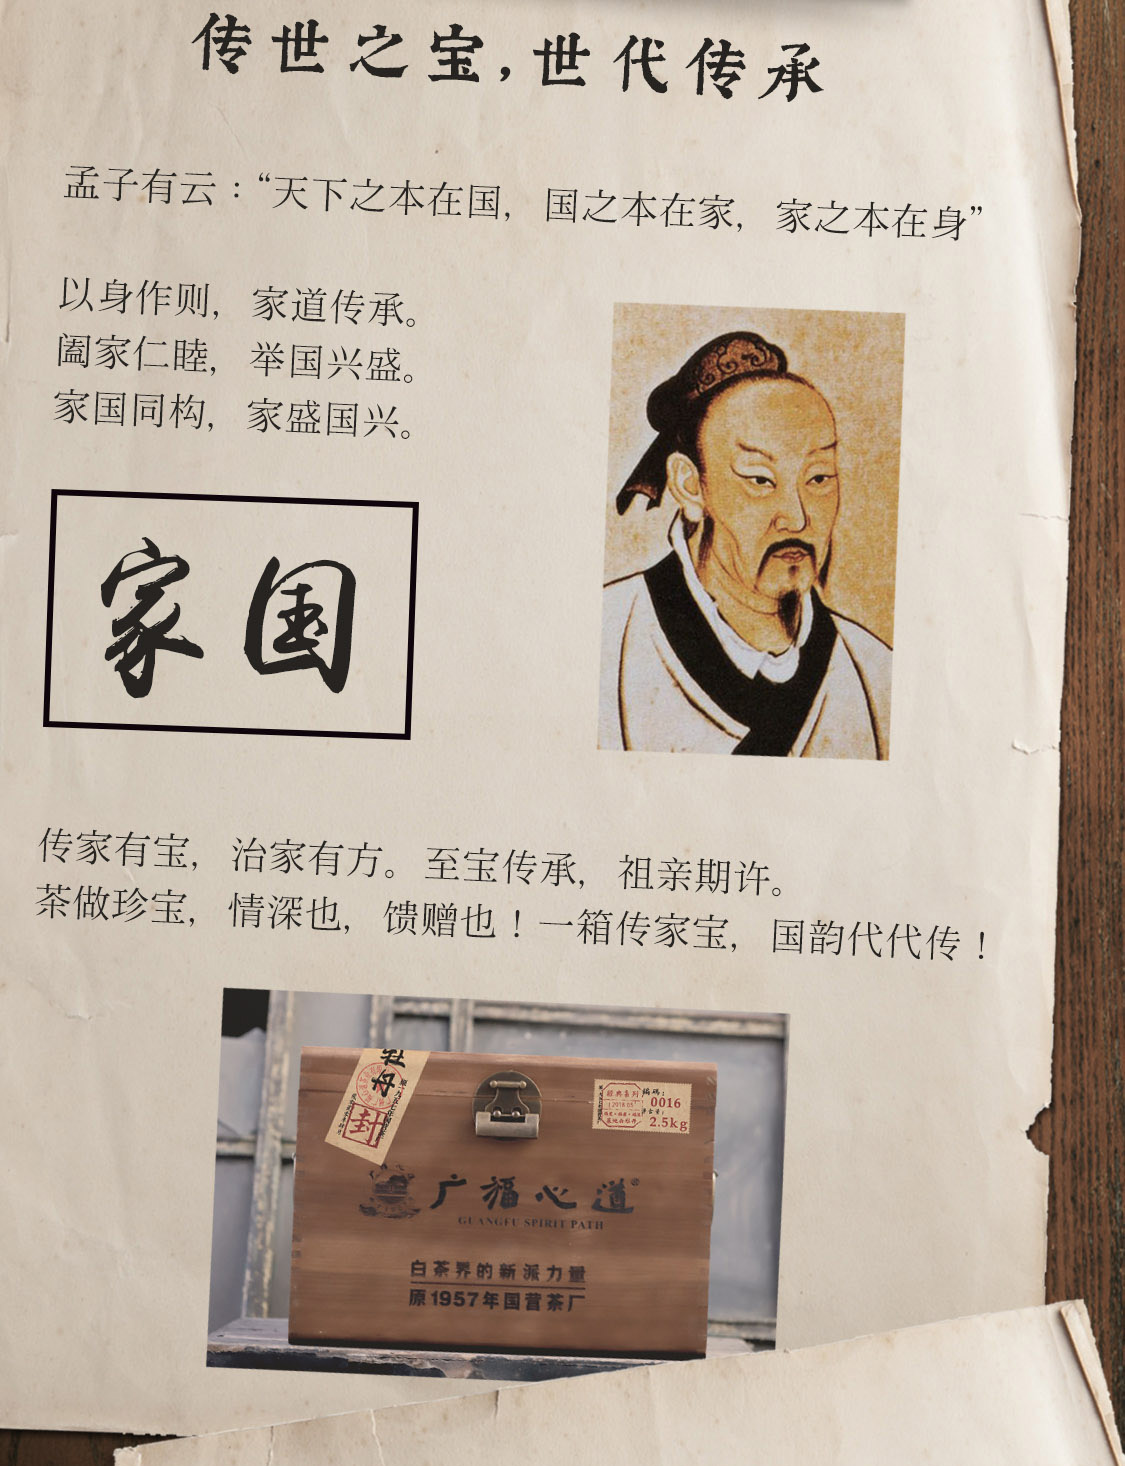 传世之宝,世代传承
孟子有云:“天下之本在国, 国之本在家, 家之本在身”
以身作则, 家道传承。
阖家仁睦, 举国兴盛。
家国同构, 家盛国兴。
家国
传家有宝, 治家有方。至宝传承, 祖亲期许。
茶做珍宝, 情深也, 馈赠也!一箱传家宝, 国韵代代传!
牡丹
封
經典系列
編碼:
0016
2.5kg
广福心道®
GUANGFU SPIRIT PATH
白茶界的新派力量
原1957年国营茶厂